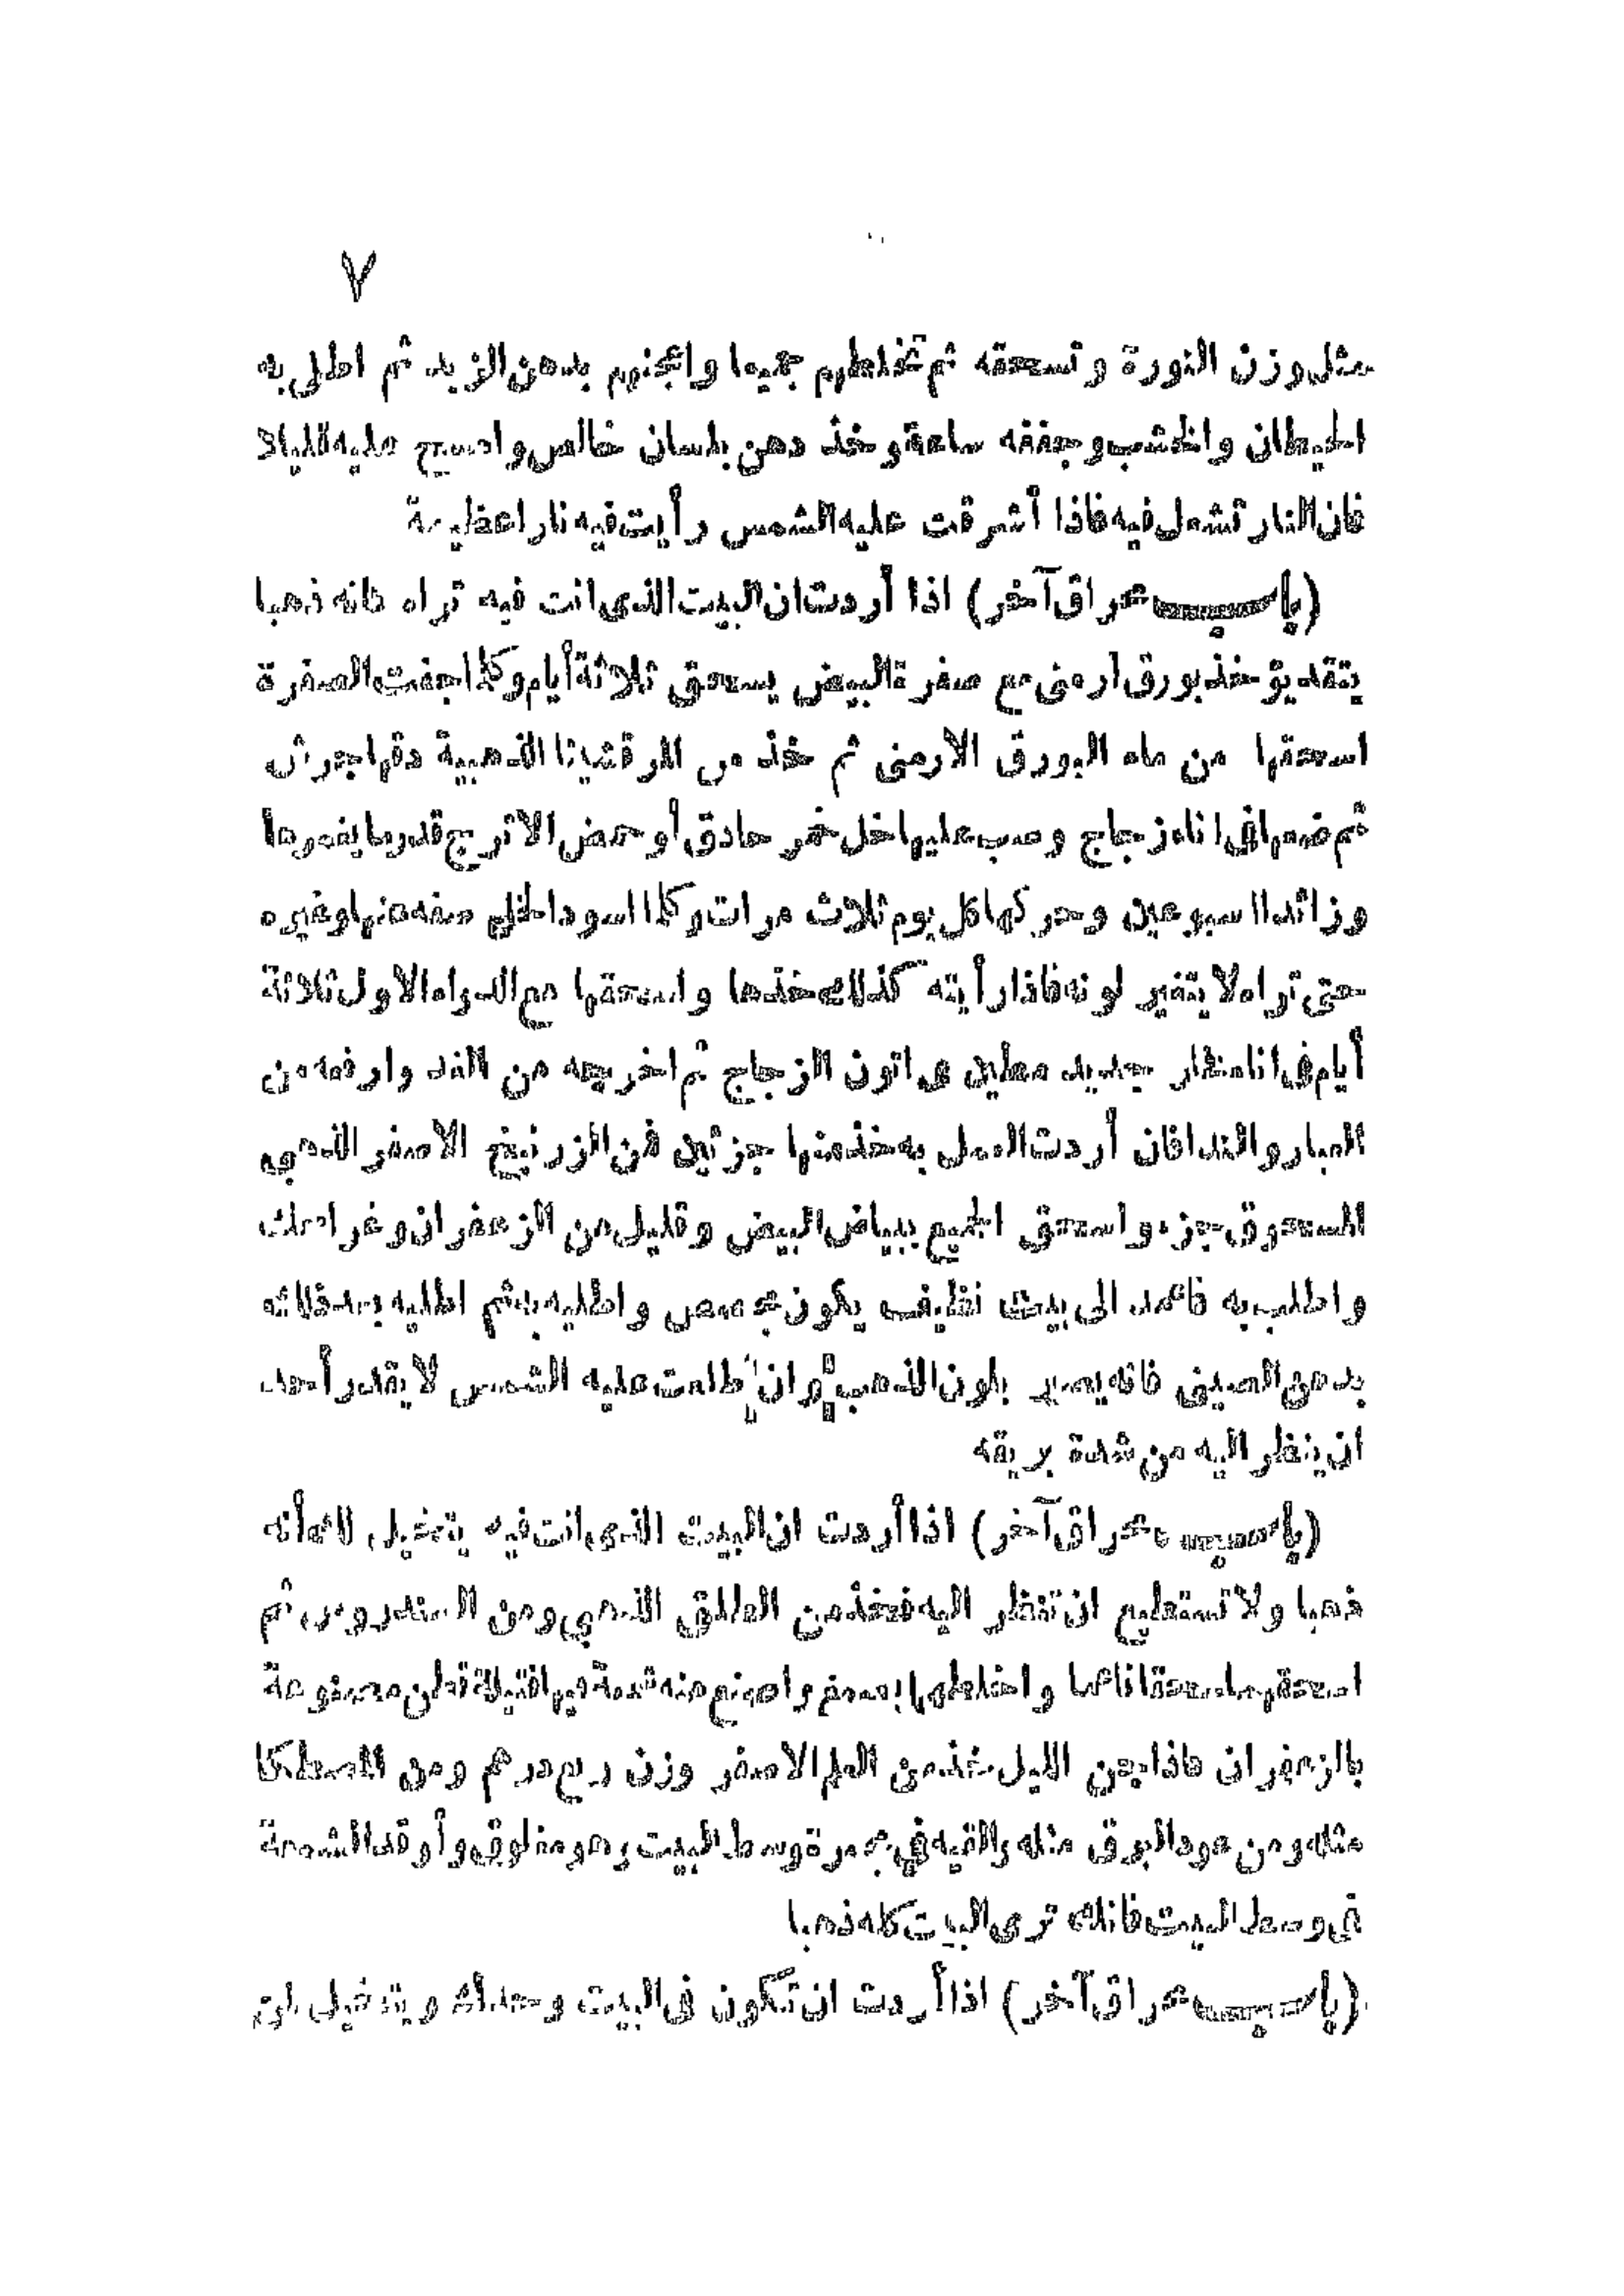 ٧
مثل وزن النورة وتسحقه ثم تخلطهم جميعا واعجنهم بدهن الزبد ثم اطلى به
الحيطان والخشب وجففه ساعة وخذ دهن بلسان خالص وامسح عليه قليلا
فان النار تشعل فيه فاذا أشرقت عليه الشمس رأيت فيه نارا عظيمة
(باب محراق آخر) اذا أردت ان البيت الذى انت فيه تراه كانه ذهبا
يتقد يؤخذ بورق ارمنى مع صفرة البيض يسحق ثلاثة أيام وكلما جفت الصفرة
اسحقها من ماء البورق الارمنى ثم خذ من المرقشيثا الذهبية دقها جرش
ثم ضعها فى اناء زجاج وصب عليها خل خمر حادق أو حمض الاترج قدر ما يغمرها
وزائدا اسبوعين وحركها كل يوم ثلاث مرات وكلما اسود الخل صفه منها وغيره
حتى تراه لا يتغير لونه فاذا رأيته كذلك خذها واسحقها مع الدواء الاول ثلاثة
أيام فى اناء فخار جديد مطين فى اتون الزجاج ثم اخرجه من الغد وارفعه من
الغبار والندا فان أردت العمل به خذ منها جزئين فمن الزرنيخ الاصفر الذهبى
المسحوق جزء واسحق الجميع ببياض البيض وقليل من الزعفران وغرا سمك
واطلب به فاعمد الى بيت نظيف يكون مجصص واطليه به ثم اطليه بعد ثلاثه
بدهن الصينى فانه يصير بلون الذهب ثم ان طلعت عليه الشمس لا يقدر أحد
ان ينظر اليه من شدة بريقه
(باب محراق آخر) اذا أردت ان البيت الذى انت فيه يتخيل لك أنه
ذهبا ولا تستطيع ان تنظر اليه فخذ من الطلق الذهبى ومن السندروس ثم
اسحقهما سحقا ناعما واخلطهما بصمغ واصنع منه شمعة فيها فتيلة قطن مصبوغة
بالزعفران فاذا جن الليل خذ من العلم الاصفر وزن ربع درهم ومن المصطكا
مثله ومن عود البرق مثله والقيه فى مجمرة وسط البيت وهو مغلوق وأوقد الشمعة
فى وسط البيت فانك ترى البيت كله ذهبا
(باب محراق آخر) اذا أردت ان تكون فى البيت وحدك ويتخيل لمن